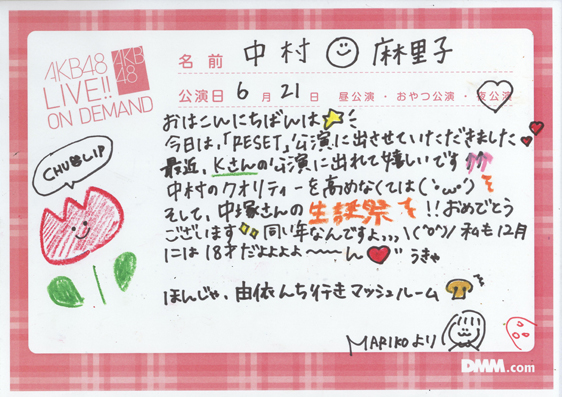 AKB48
LIVE!!
ON DEMAND
AKB
48
名前 中村 麻里子
公演日 6月21日 昼公演・おやつ公演・夜公演
おはこんにちばんは
今日は、「RESET」公演に出させていただきました
最近、Kさんの公演に出れて嬉しいです
中村のクオリティーを高めなくては(`・ω・´)
そして、中塚さんの生誕祭を!!おめでとう
ございます 同い年なんですよ、、、\(^o^)/ 私も12月
には18才だよよよよ〜〜〜ん うきゃ
ほんじゃ、由依んち行きマッシュルーム
MARIKOより
CHU LIP
DMM.com